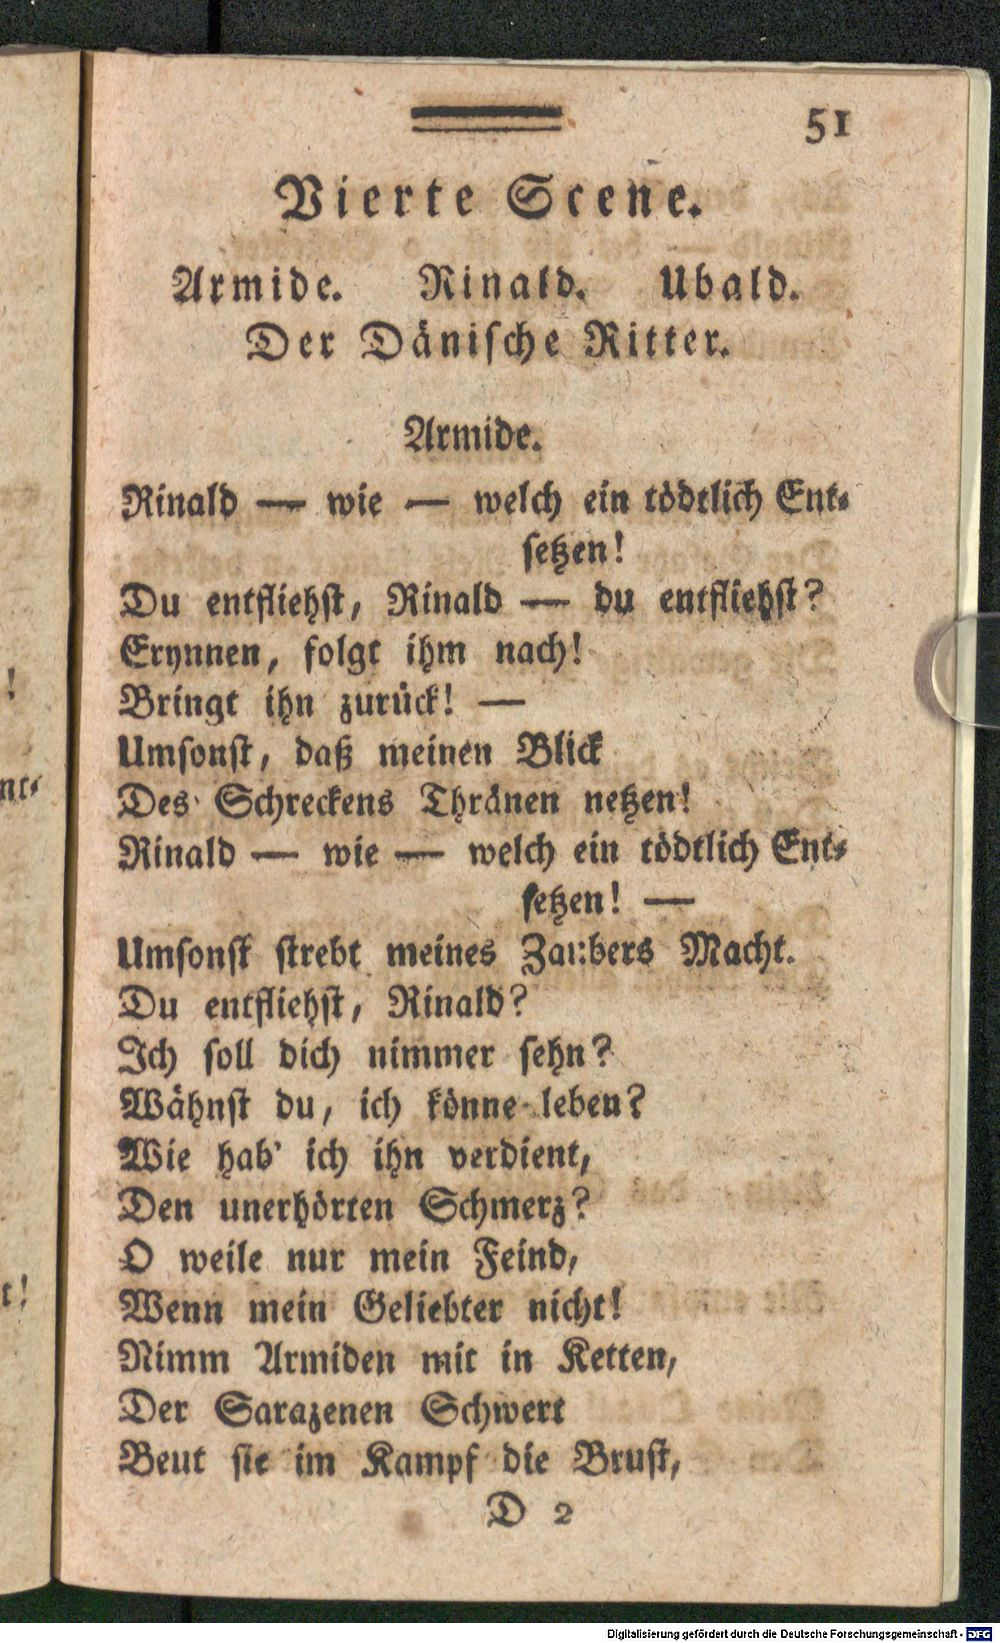 51
Vierte Scene.
Armide. Rinald. Ubald.
Der Dänische Ritter.
Armide.
Rinald — wie — welch ein tödtlich Ent-
setzen!
Du entfliehst, Rinald — du entfliehst?
Erynnen, folgt ihm nach!
Bringt ihn zurück! —
Umsonst, daß meinen Blick
Des Schreckens Thränen netzen!
Rinald — wie — welch ein tödtlich Ent-
setzen! —
Umsonst strebt meines Zaubers Macht.
Du entfliehst, Rinald?
Ich soll dich nimmer sehn?
Wähnst du, ich könne leben?
Wie hab' ich ihn verdient,
Den unerhörten Schmerz?
O weile nur mein Feind,
Wenn mein Geliebter nicht!
Nimm Armiden mit in Ketten,
Der Sarazenen Schwert
Beut sie im Kampf die Brust,
D 2
!
nt-
t!
Digitalisierung gefördert durch die Deutsche Forschungsgemeinschaft - DFG